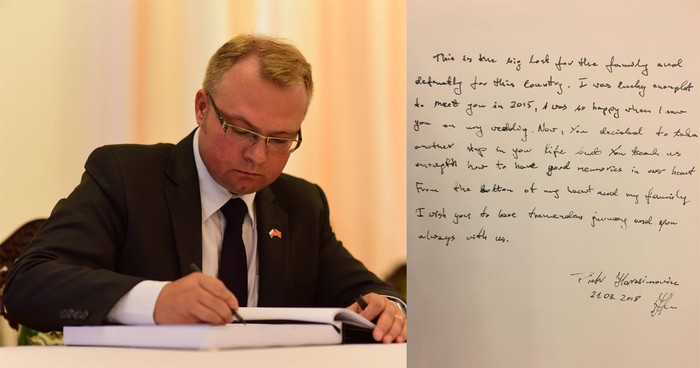 This is the big lost for the family and
definatly for this country. I was lucky enought
to meet you in 2015, I was so happy when I saw
you on my wedding. Now, You decided to take
another step in you life but You teach us
enought how to have good memories in our heart
From the bottom of my heart and my family
I wish you to have tremendous journey and you
always with us.
Piotr Harasimowicz
21.09.2018